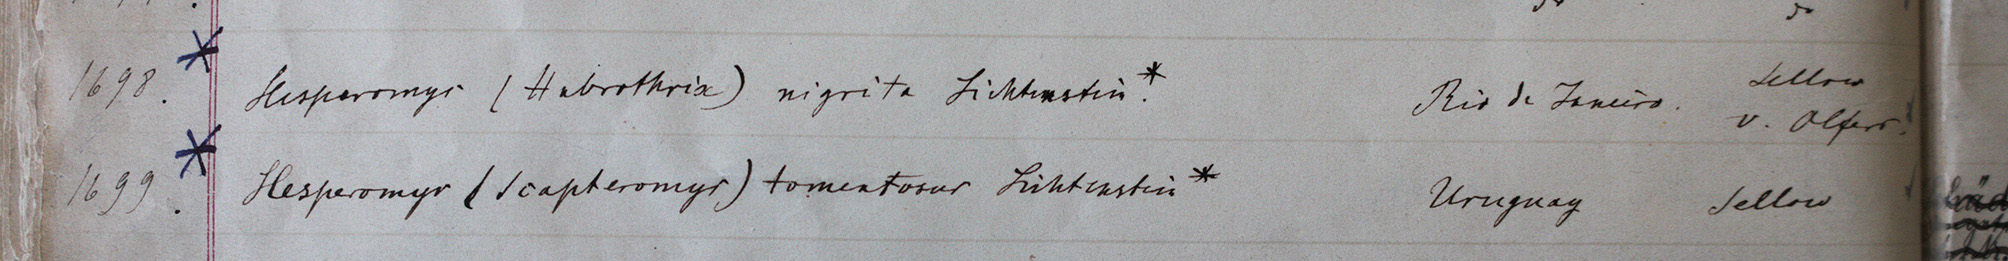 do do
1698. * Hesperomys (Habrothrix) nigrita Lichtenstein.* Rio de Janeiro. Sellow
v. Olfers.
1699. * Hesperomys (Scapteromys) tomentosus Lichtenstein* Uruguay Sellow